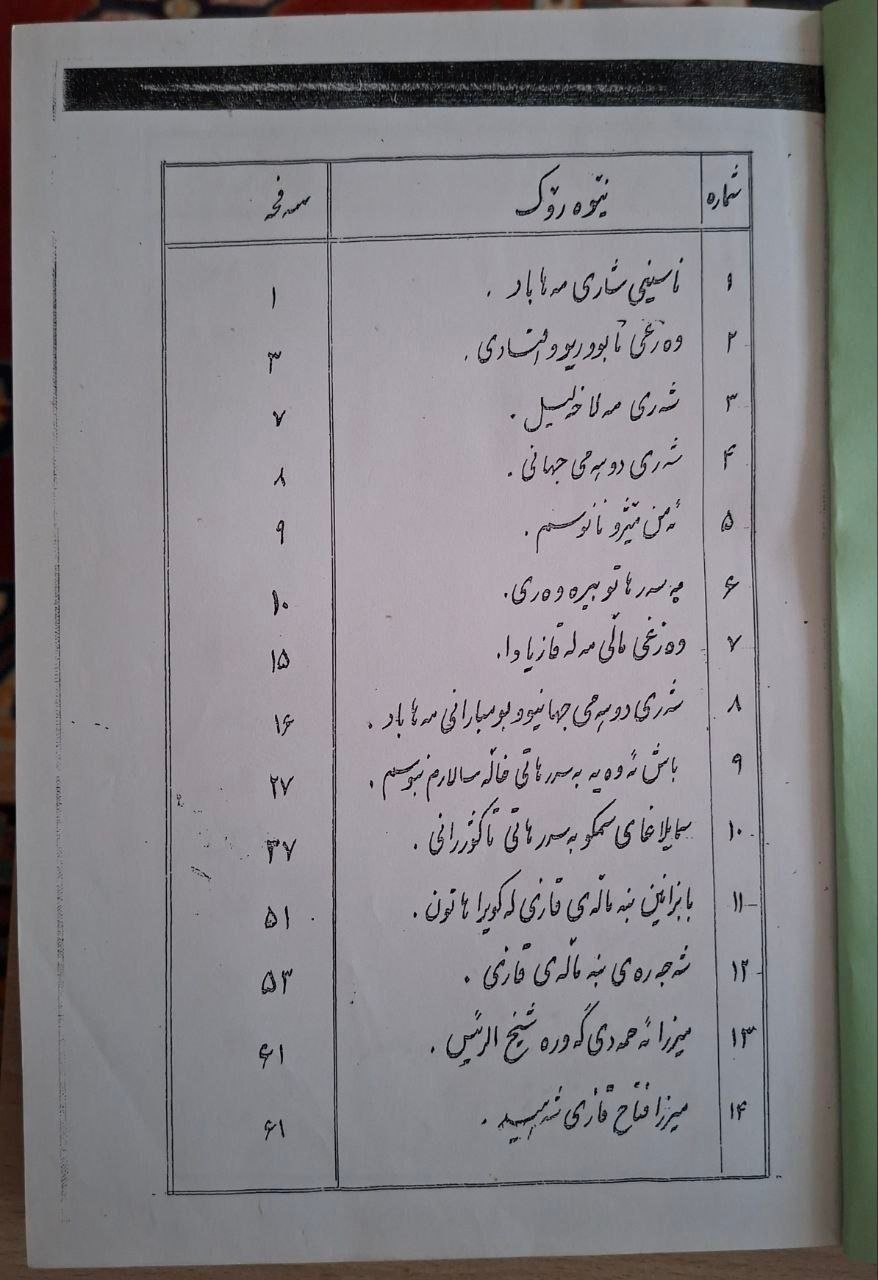 شماره نێوەرۆک سەفحە
۱ ناسینی شاری مەهاباد . ۱
۲ وەزعی ئابووریو و اقتصادی . ۳
۳ شەری مەلا خەلیل . ۷
۴ شەری دوهەمی جهانی . ۸
۵ ئەمن مێژو نانوسم . ۹
۶ بەسەرهاتو بیرەوەری . ۱۰
۷ وەزعی ماڵی مە لە قازیاوا . ۱۵
۸ شەری دوهەمی جهانیوو بومبارانی مەهاباد . ۱۶
۹ باش ئەوەیە بەسەرهاتی خاڵە سالارم بنوسم . ۲۷
۱۰ سمایلاغای سمکو بەسەرهاتی تا کۆژرانی . ۳۷
۱۱ با بزانین بنەماڵەی قازی لە کویرا هاتون . ۵۱
۱۲ شەجەرەی بنەماڵەی قازی . ۵۳
۱۳ میرزا ئەحمەدی گەورە شیخ الرئیس . ۶۱
۱۴ میرزا فتاح قازی شەهید . ۶۱